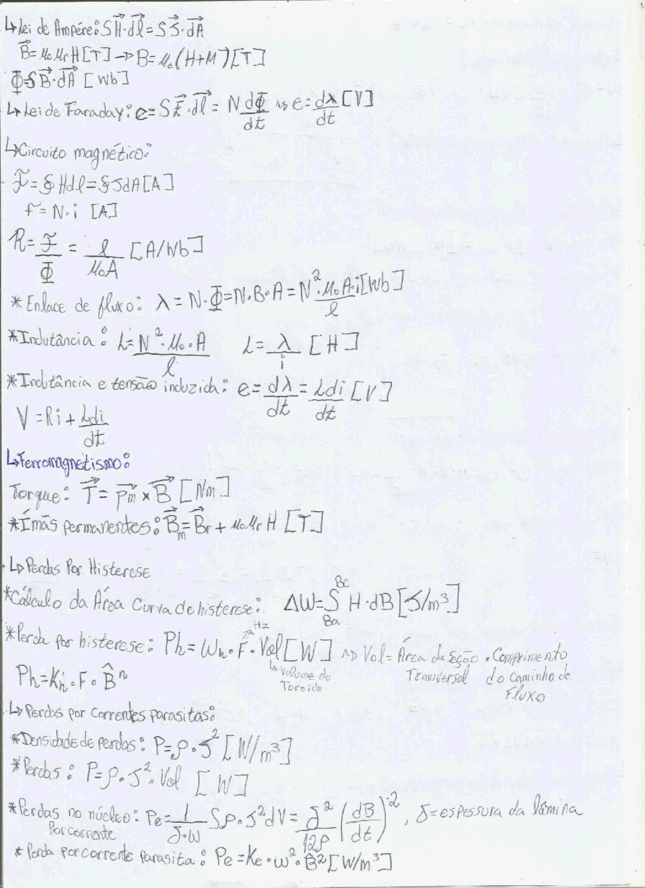 ↳Lei de Ampére: ∫H⃗·dl⃗=∫J⃗·dA⃗
B⃗=μ₀μᵣH[T]→B=μ₀(H+M)[T]
Φ=∫B⃗·dA⃗ [Wb]
↳Lei de Faraday: e=∫E⃗·dl⃗ = N dΦ/dt ⇝ e=dλ/dt [V]
↳Circuito magnético:
ℱ=∮Hdl=∮JdA[A]
f=N·i [A]
R=ℱ/Φ = l/μ₀A [A/Wb]
*Enlace de fluxo: λ=N·Φ=N·B·A=N²·μ₀A·i/l [Wb]
*Indutância: L=N²·μ₀·A/l L=λ/i [H]
*Indutância e tensão induzida: e=dλ/dt=Ldi/dt [V]
V=Ri+Ldi/dt
↳Ferromagnetismo:
Torque: T⃗=p⃗m×B⃗ [Nm]
*Ímãs permanentes: B⃗m=B⃗r+μ₀μᵣH [T]
↳Perdas Por Histerese
*Cálculo da Área Curva de histerese: ΔW=∫ Ba Bc H·dB[J/m³]
*Perda por histerese: Ph=Wh·F·Vol[W] ⇝ Vol=Área da Seção Transversal · Comprimento do Caminho de Fluxo
Hz
↳Volume do Toroide
Ph=K'h·F·B̂ⁿ
↳Perdas por correntes parasitas:
*Densidade de perdas: P=ρ·J² [W/m³]
*Perdas: P=ρ·J²·Vol [W]
*Perdas no núcleo: Pe=1/δ·w ∫ρ·J²dV=δ²/12ρ (dB/dt)², δ=espessura da lâmina
Por corrente
*Perda por corrente parasita: Pe=Ke·w²·B̂²[W/m³]